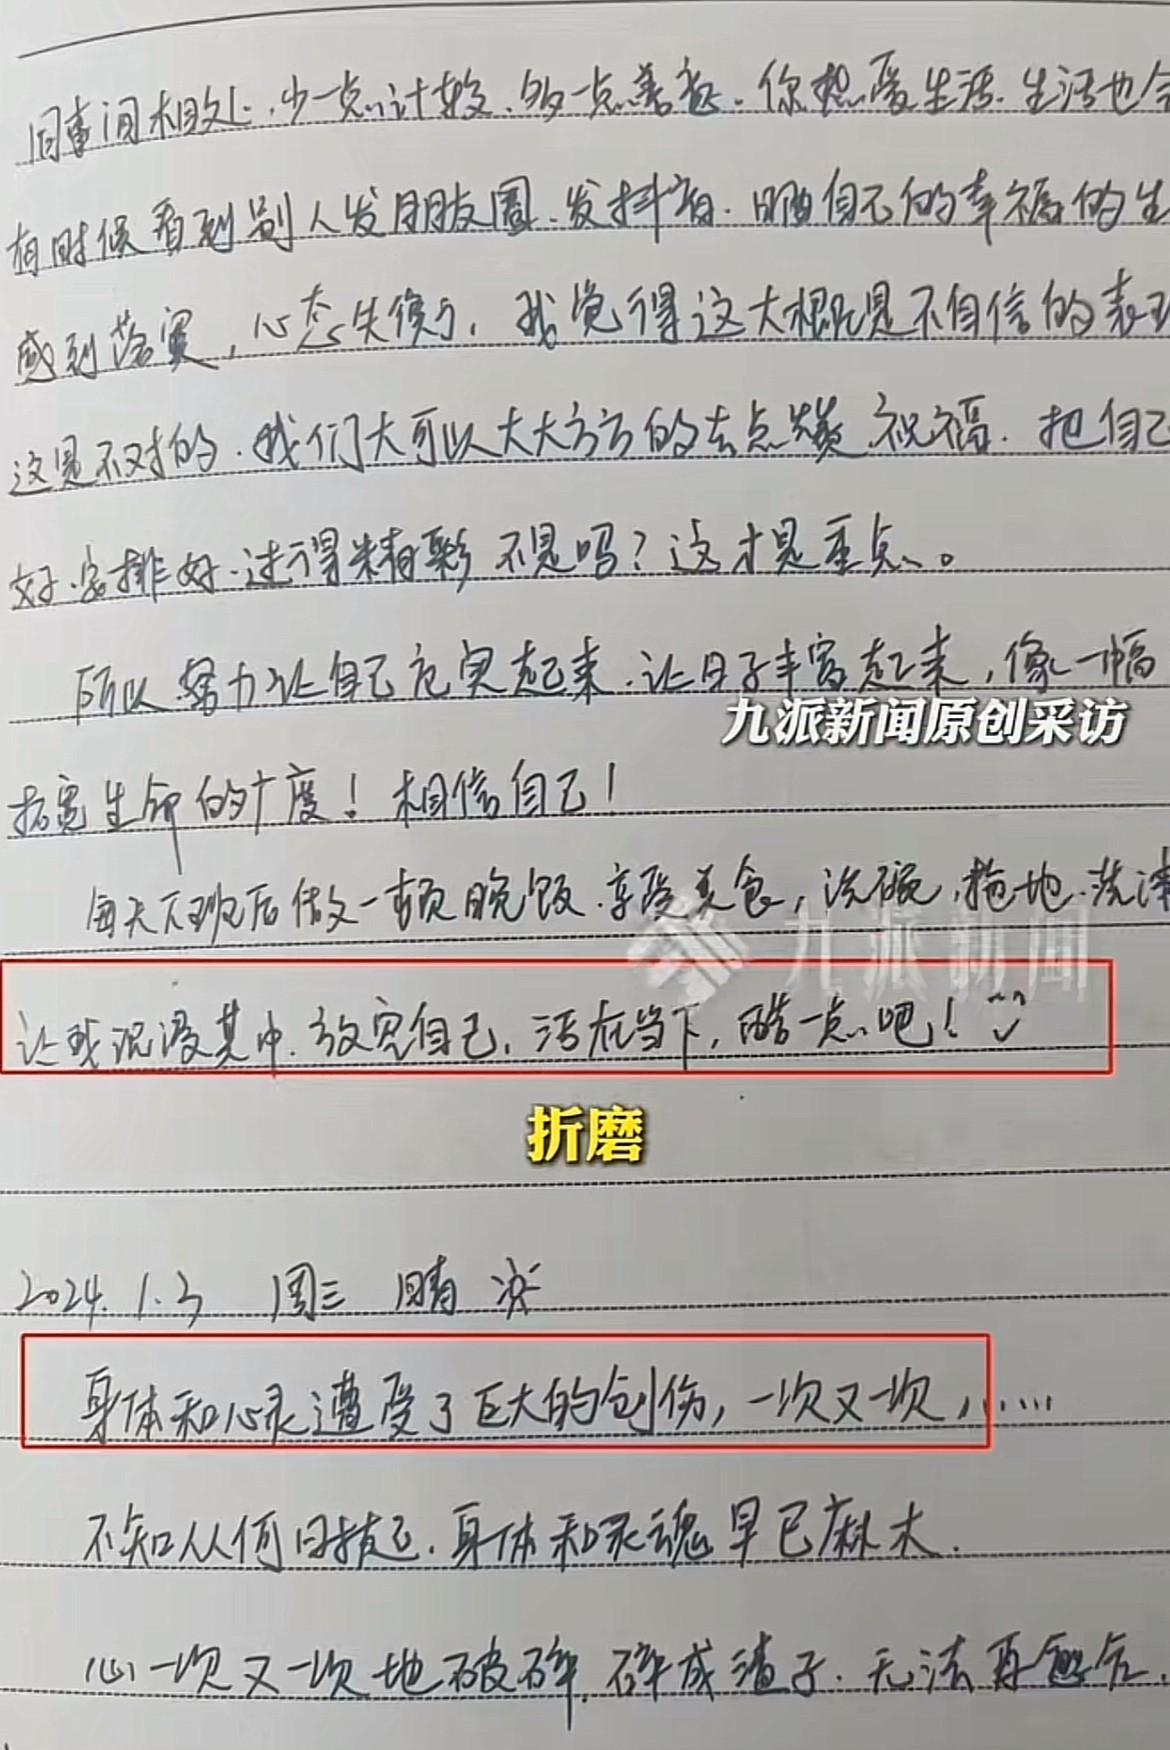 同事间相处,少一点计较,多一点善意.你热爱生活.生活也会
有时候看到别人发朋友圈.发抖音.晒自己的幸福的生
感到落寞,心态失衡了,我觉得这大概是不自信的表现
这是不对的.我们大可以大大方方的去点赞 祝福.把自己
好.安排好.过得精彩 不是吗?这才是重点。
所以努力让自己充实起来.让日子丰富起来,像一幅
九派新闻原创采访
拓宽生命的广度!相信自己!
每天下班后做一顿晚饭.享受美食,洗碗,拖地.洗澡
九派新闻
让我沉浸其中.放宽自己,活在当下,酷一点吧!
折磨
2024.1.3 周三 晴 冷
身体和心灵遭受了巨大的创伤,一次又一次,……
不知从何日捡起.身体和灵魂早已麻木.
心一次又一次地破碎,碎成渣子.无法再愈合.